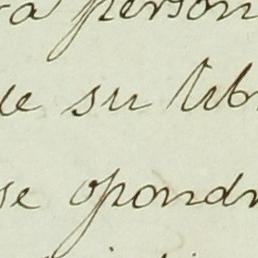 ra person
de su libr
se opondr